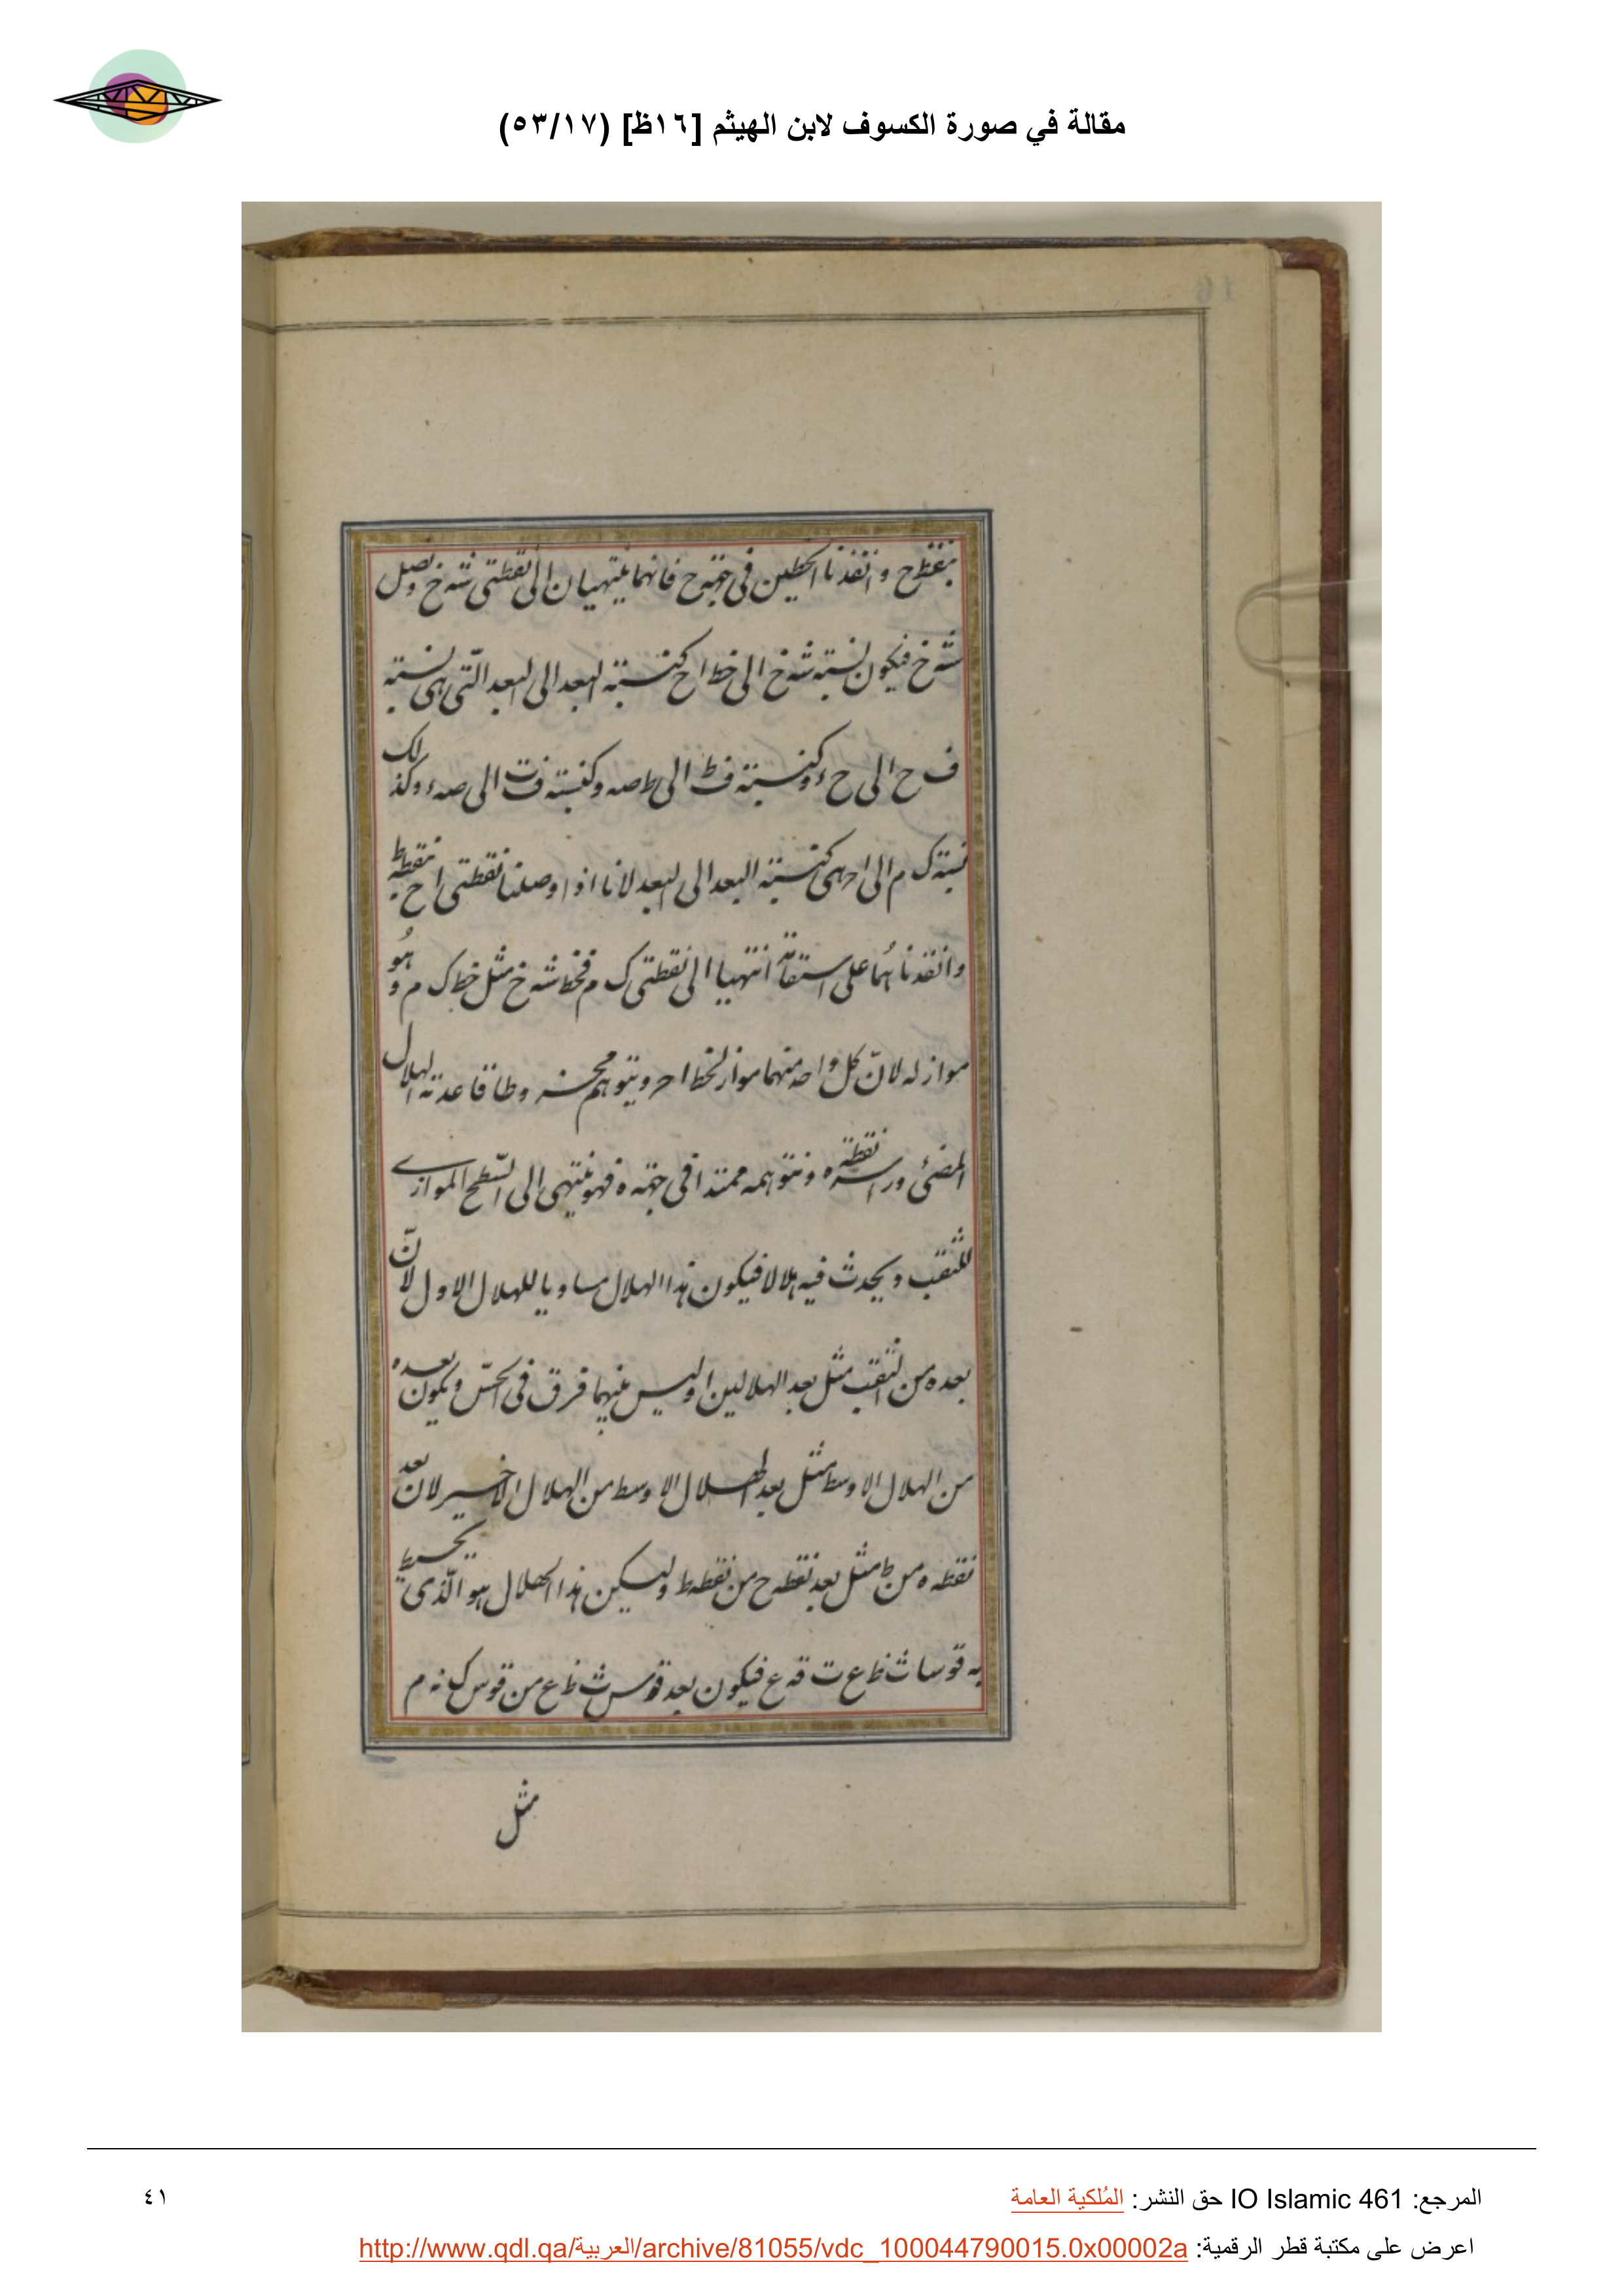 مقالة في صورة الكسوف لابن الهيثم [١٦ظ] (٥٣/١٧)
16
بنقطة ح وانفذنا الخطين في جهة ح فانهما ينتهيان الى نقطتى شه خ ونصل
شه خ فيكون نسبة شه خ الى خط ا ح كنسبة البعد الى البعد التى هى نسبة
ف ح الى ح ء وكنسبة ف ط الى ط صه وكنسبة ف ت الى صه ء وكذلك
نسبة ك م الى ا حـ هى كنسبة البعد الى البعد لانا اذا وصلنا نقطتى ا ح بنقطة ط
وانفذناهما على استقامة انتهيا الى نقطتى ك م فخط شه خ مثل خط ك م وهو
مواز له لانّ كل واحد منهما مواز لخط ا حـ ونتوهم مخروطا قاعدته الهلال
المضئ وراسه نقطة ه ونتوهمه ممتدا فى جهة ه فهو ينتهى الى السّطح الموازى
للثقب ويحدث فيه هلالا فيكون هذا الهلال مساويا للهلال الاول لانّ
بعده من الثقب مثل بعد الهلالين اوليس بينهما فرق فى الحسّ ويكون بعده
من الهلال الاوسط مثل بعد الهلال الاوسط من الهلال الاخير لانّ بعد
نقطة ه من ط مثل بعد نقطة ح من نقطة ط وليكن هذا الهلال هو الّذى يحيط
به قوسا ث ظ ع ت قه ع فيكون بعد قوس ث ظ ع من قوس ك نه م
مثل
المرجع: IO Islamic 461 حق النشر: المُلكية العامة
٤١
اعرض على مكتبة قطر الرقمية: http://www.qdl.qa/العربية/archive/81055/vdc_100044790015.0x00002a